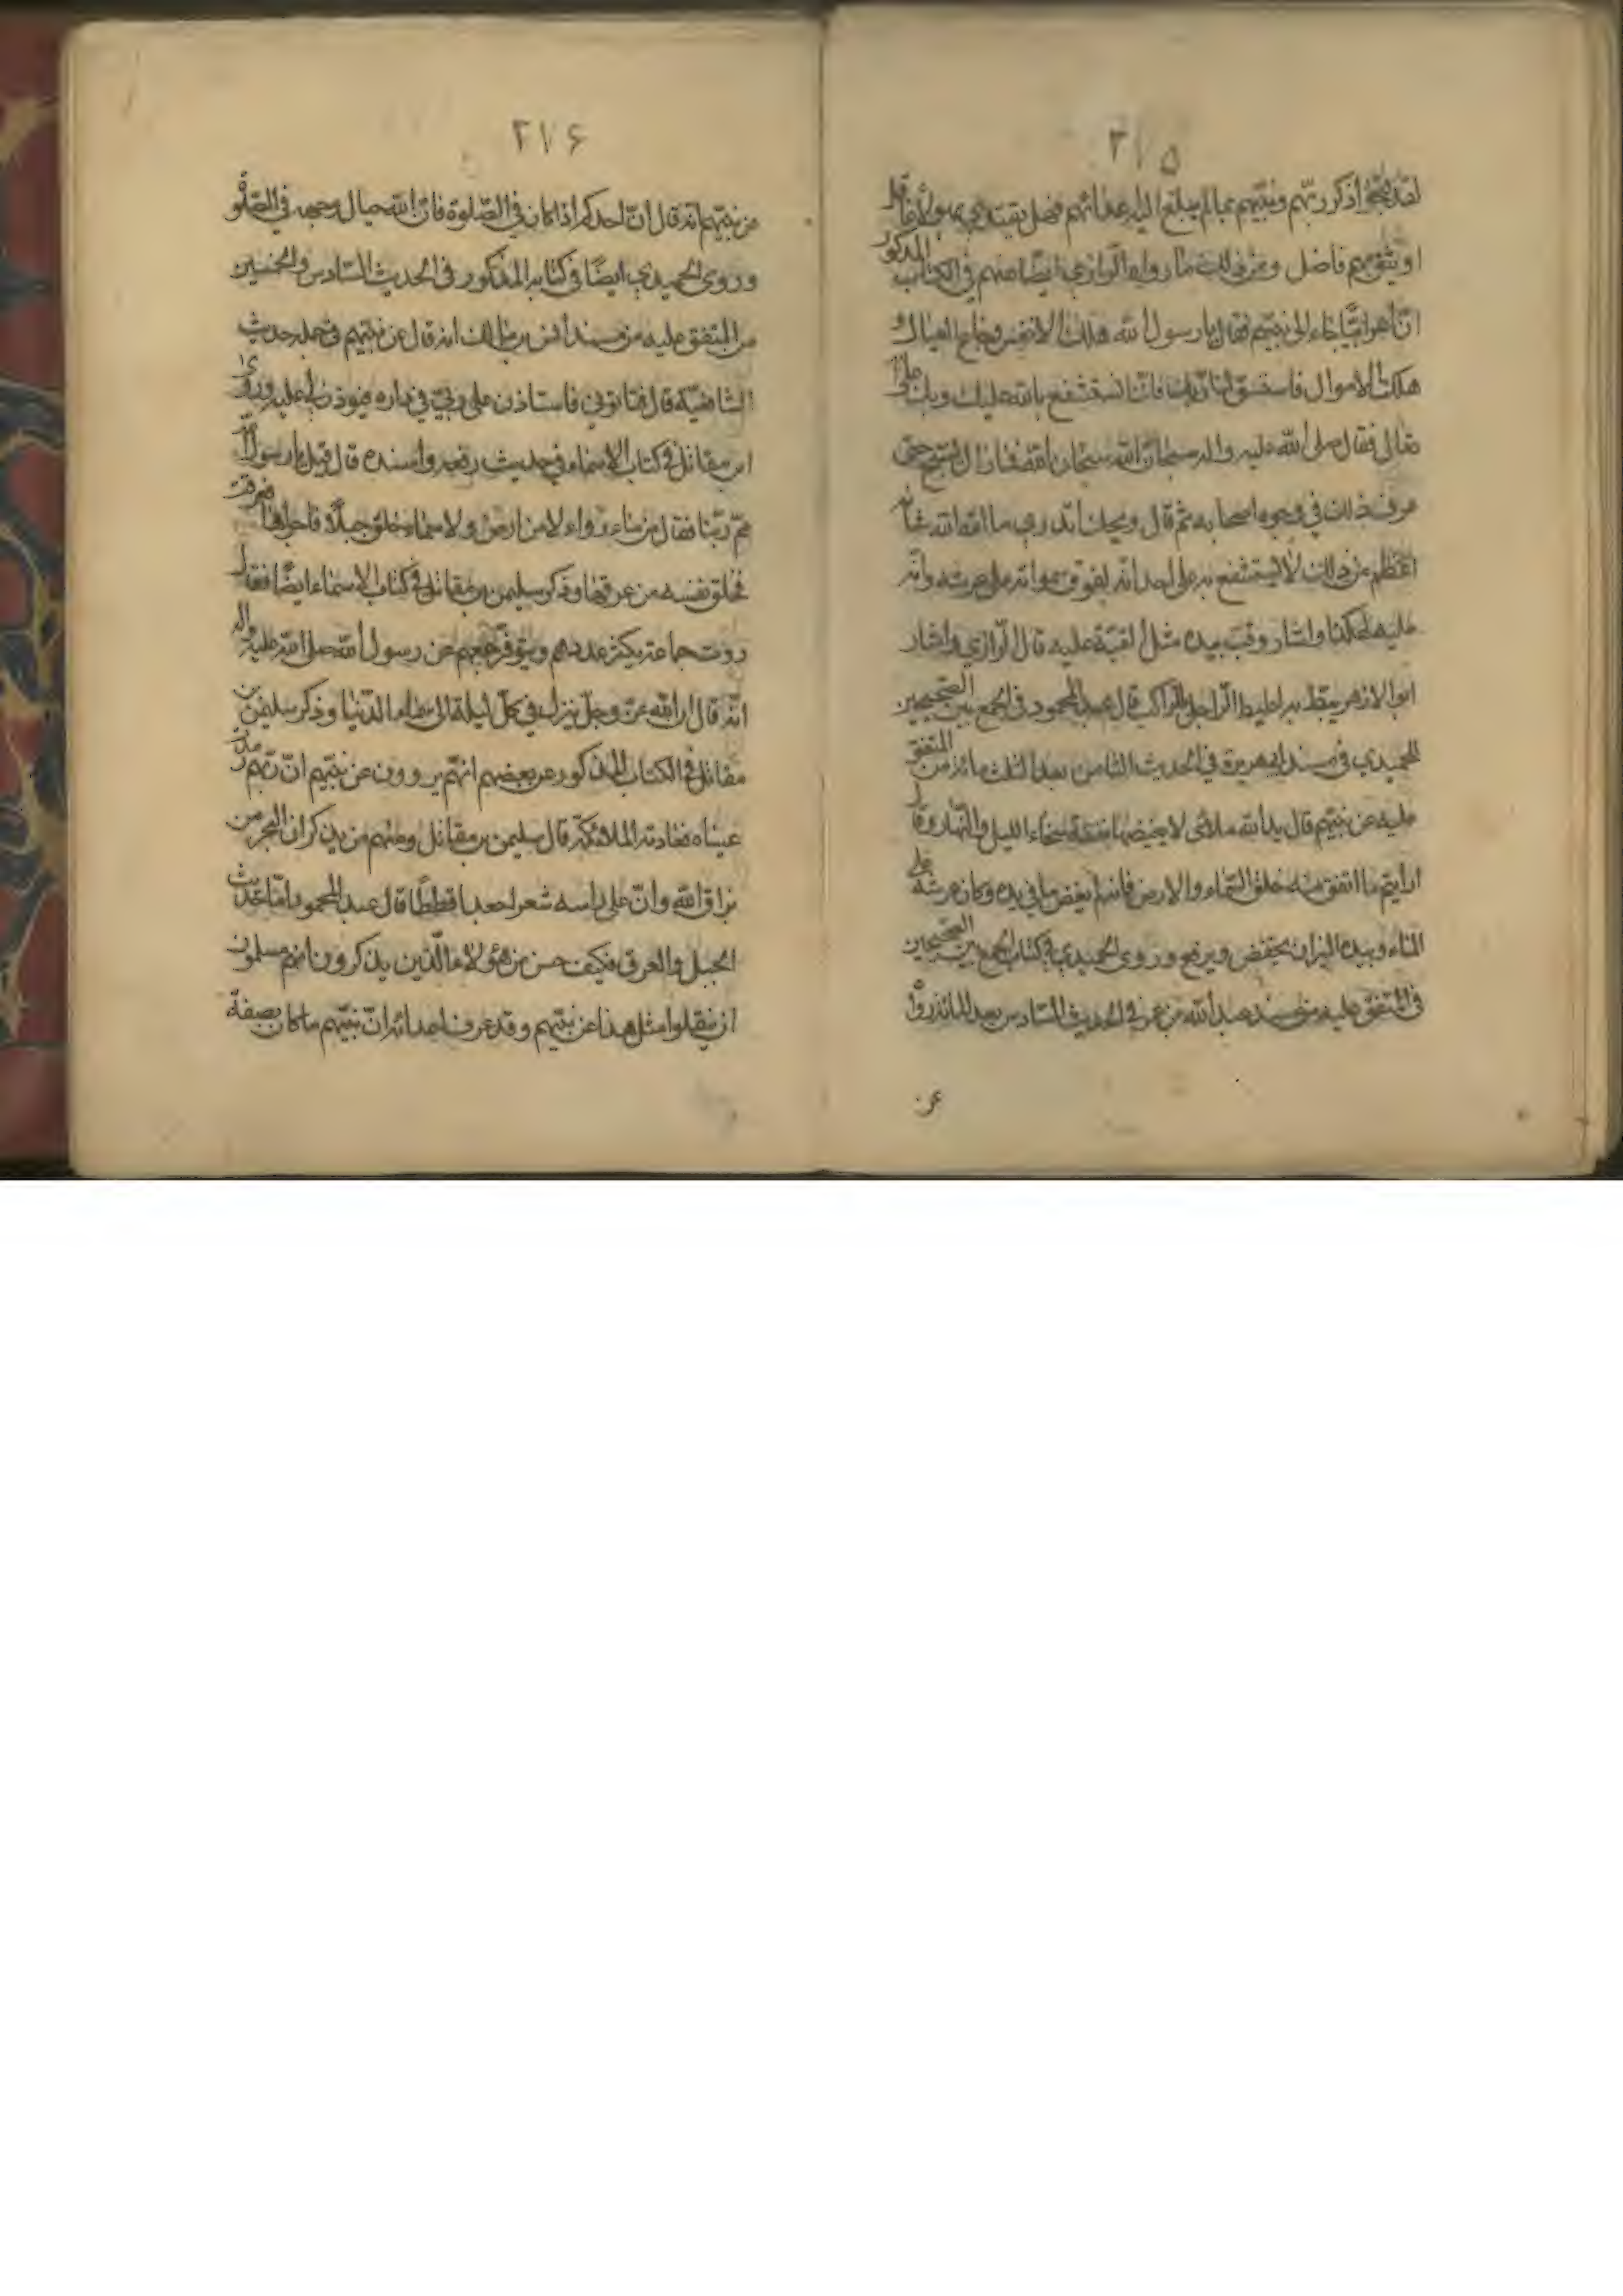 ٢١٥
لقد اذكر ربهم ونبيهم بمالم يبلغ اليه اعدائهم فهل يقتدى بهؤلاء عاقل
او يثق بهم فاضل ومن ذلك ما رواه الرازي ايضا عنهم في الكتاب المذكور
ان اعرابيا جاء الى نبيهم فقال يا رسول الله هلكت الانفس وجاع العيال و
هلكت الاموال فاستسق لنا ربك فانا نستشفع بالله عليك وبك على
فقال صلى الله عليه واله سبحان الله سبحان الله فما زال يسبح حتى
عرف ذلك في وجوه اصحابه ثم قال ويحك اتدري ما الله الله شأنه
اعظم من ذلك لا يستشفع به على احد انه لفوق سمواته على عرشه وانه
عليه لهكذا واشار وقبب بيده مثل القبة عليه قال الرازي واشار
ابو الازهر يئط به اطيط الرحل بالراكب قال عبد المحمود في الجمع بين الصحيحين
للحميدي في مسند ابي هريرة في الحديث الثامن بعد الثلث مائة من المتفق
عليه عن نبيهم قال يد الله ملائى لا يغيضها نفقة سحاء الليل والنهار وقال
ارايتم ما انفق منذ خلق السماء والارض فانه لم يغض ما في يده وكان عرشه على
الماء وبيده الميزان يخفض ويرفع وروى الحميدي في كتاب الجمع بين الصحيحين
في المتفق عليه من مسند عبد الله بن عمر في الحديث السادس بعد المائة
عن
٢١٦
عن نبيهم انه قال ان احدكم اذا كان في الصلوة فان الله حيال وجهه في الصلوة
وروى الحميدي ايضا في كتابه المذكور في الحديث السادس والخمسين
من المتفق عليه من مسند انس بن مالك انه قال عن نبيهم في جملة حديث
الشفاعة قال فياتوني فاستاذن على ربي في داره فيوذن لي عليه وروى
ابن مقاتل في كتاب الاسماء في حديث رفعه واسنده قال قيل يا رسول الله
مم ربنا فقال من ماء رواء لا من ارض ولا سماء خلق خيلا فاجراها فعرقت
فخلق نفسه من عرقها وذكر سليمن بن مقاتل في كتاب الاسماء ايضا فقال
روت جماعة يكثر عددهم ويتوفر جمعهم عن رسول الله صلى الله عليه واله
انه قال ان الله عز وجل ينزل في كل ليلة الى سماء الدنيا وذكر سليمن بن
مقاتل في الكتاب المذكور عن بعضهم انهم يروون عن نبيهم ان ربهم رمدت
عيناه فعادته الملائكة قال سليمن بن مقاتل ومنهم من يذكر ان البحر من
بزاق الله وان على راسه شعرا جعدا قططا قال عبد المحمود اما حديث
الخيل والعرق فكيف حسن من هؤلاء الذين يذكرون انهم مسلمون
ان ينقلوا مثل هذا عن نبيهم وقد عرف اعدائه ان نبيهم ما كان بصفة